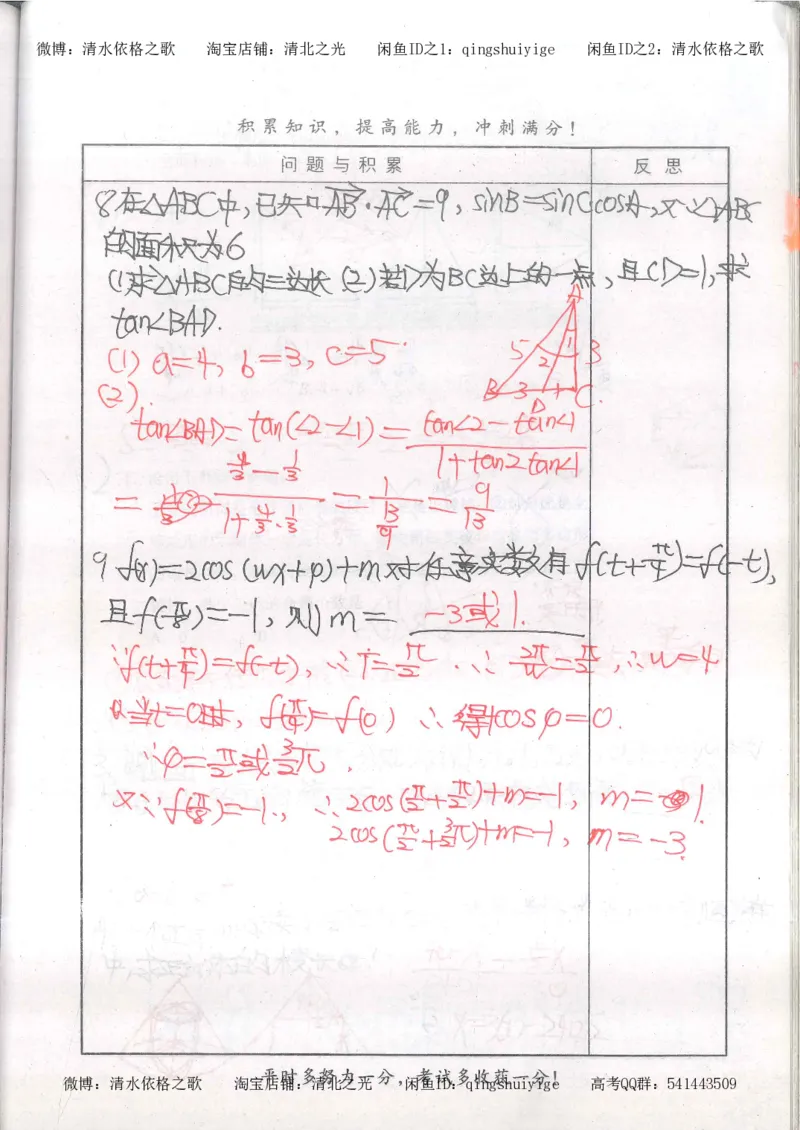 微博：清水依格之歌 淘宝店铺：清北之光 闲鱼ID之1：qingshuiyige 闲鱼ID之2：清水依格之歌
积累知识，提高能力，冲刺满分！
问题与积累 反思
8在△ABC中,已知AB·AC=9,sinB=sinCcosA,又∵△ABC
的面积为6
(1)求△ABC的三边长(2)若D为BC边上的一点,且CD=1,求
tan∠BAD.
(1) a=4, b=3, c=5
A
5 2 1 3
B 3 D 1 C
(2).
tan∠BAD=tan(∠2-∠1)= (tan∠2-tan∠1)/(1+tan2tan∠1)
= (4/3-1/3)/(1+4/3·1/3) = 1/(13/9) = 9/13
9 f(x)=2cos(wx+φ)+m对任意实数t有f(t+π/4)=f(-t),
且f(π/8)=-1,则m= -3或1.
∵f(t+π/4)=f(-t),∴T=π/2.∴2π/w=π/2,∴w=4
当t=0时,f(π/4)=f(0)∴得cosφ=0.
∴φ=π/2或3/2π.
又∵f(π/8)=-1.,∴2cos(π/2+π/2)+m=-1, m=1.
2cos(π/2+3/2π)+m=-1, m=-3.
平时多努力一分，考试多收获一分！
微博：清水依格之歌 淘宝店铺：清北之光 闲鱼ID：qingshuiyige 高考QQ群：541443509